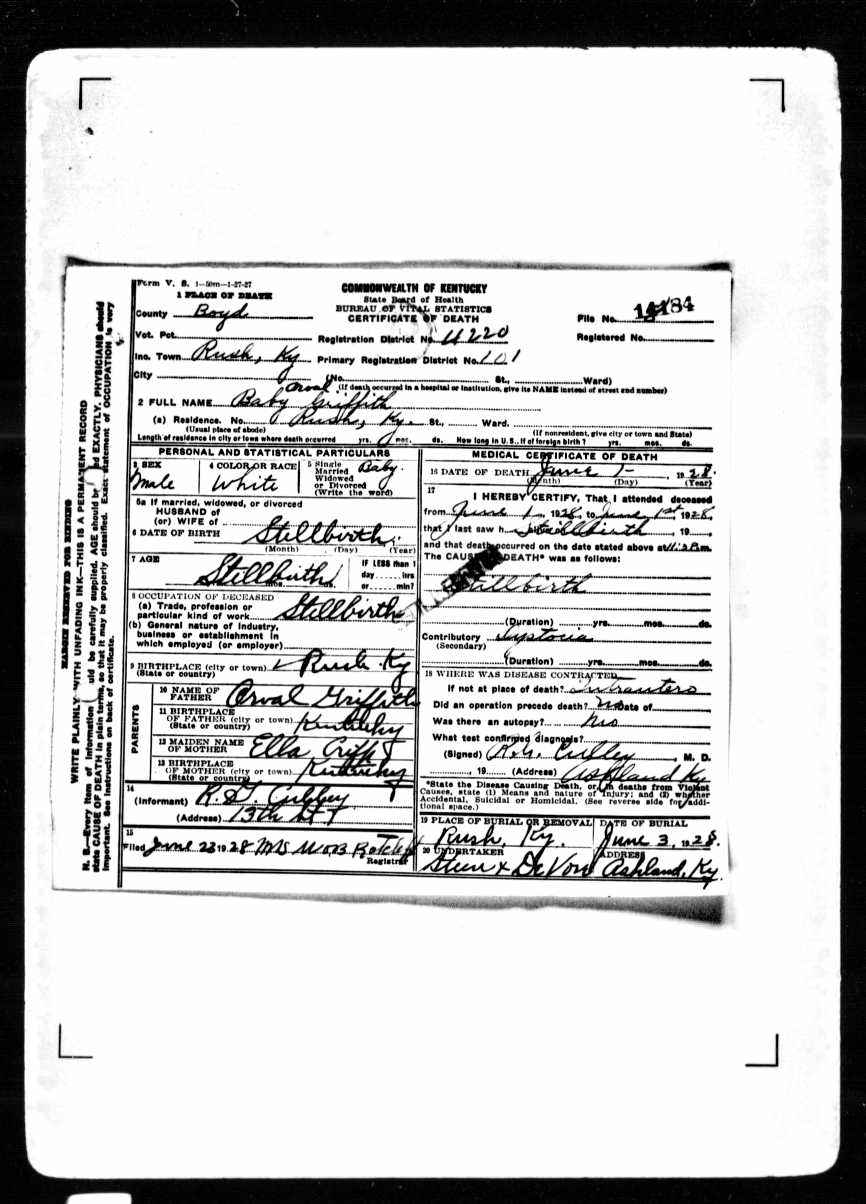 Form V. S. 1—50m—1-27-27
1 PLACE OF DEATH
County Boyd
Vot. Pct.
Inc. Town Rush, Ky
City (No. St., Ward)
COMMONWEALTH OF KENTUCKY
State Board of Health
BUREAU OF VITAL STATISTICS
CERTIFICATE OF DEATH
Registration District No. 4220
Primary Registration District No. 101
File No. 14184
Registered No.
(If death occurred in a hospital or institution, give its NAME instead of street and number)
Orval
2 FULL NAME Baby Griffith
(a) Residence. No. Rush, Ky. St., Ward.
(Usual place of abode) (If nonresident, give city or town and State)
Length of residence in city or town where death occurred yrs. mos. ds. How long in U. S., if of foreign birth? yrs. mos. ds.
PERSONAL AND STATISTICAL PARTICULARS
3 SEX
Male
4 COLOR OR RACE
White
5 Single
Married
Widowed
or Divorced
(Write the word)
Baby.
5a If married, widowed, or divorced
HUSBAND of
(or) WIFE of
6 DATE OF BIRTH Stillbirth.
(Month) (Day) (Year)
7 AGE
Stillbirth
mos. ds.
IF LESS than 1
day hrs
or min?
8 OCCUPATION OF DECEASED
(a) Trade, profession or
particular kind of work Stillbirth
(b) General nature of industry,
business or establishment in
which employed (or employer)
9 BIRTHPLACE (city or town) Rush Ky
(State or country)
PARENTS
10 NAME OF
FATHER Orval Griffith
11 BIRTHPLACE
OF FATHER (city or town) Kentucky
(State or country)
12 MAIDEN NAME
OF MOTHER Ella
13 BIRTHPLACE
OF MOTHER (city or town) Kentucky
(State or country)
14
(Informant)
(Address) 13th St
15
Filed June 23 1928 Mrs
Registrar
MEDICAL CERTIFICATE OF DEATH
16 DATE OF DEATH June 1- , 1928.
(Month) (Day) (Year)
17
I HEREBY CERTIFY, That I attended deceased
from June 1 , 1928, to June 1st, 1928,
that I last saw h Stillbirth , 19
and that death occurred on the date stated above at m.
The CAUSE OF DEATH* was as follows:
Stillbirth
(Duration) yrs. mos. ds.
Contributory Dystocia
(Secondary)
(Duration) yrs. mos. ds.
18 WHERE WAS DISEASE CONTRACTED
If not at place of death?
Did an operation precede death? no Date of
Was there an autopsy? no
What test confirmed diagnosis?
(Signed) , M. D.
, 19 (Address) Ashland Ky
*State the Disease Causing Death, or, in deaths from Violent
Causes, state (1) Means and nature of Injury; and (2) whether
Accidental, Suicidal or Homicidal. (See reverse side for additional space.)
19 PLACE OF BURIAL OR REMOVAL
Rush, Ky.
DATE OF BURIAL
June 3, 1928.
20 UNDERTAKER
Steen & DeVore
ADDRESS
Ashland, Ky.
MARGIN RESERVED FOR BINDING
WRITE PLAINLY WITH UNFADING INK—THIS IS A PERMANENT RECORD
N. B.—Every item of information should be carefully supplied. AGE should be stated EXACTLY. PHYSICIANS should
state CAUSE OF DEATH in plain terms, so that it may be properly classified. Exact statement of OCCUPATION is very
important. See instructions on back of certificate.